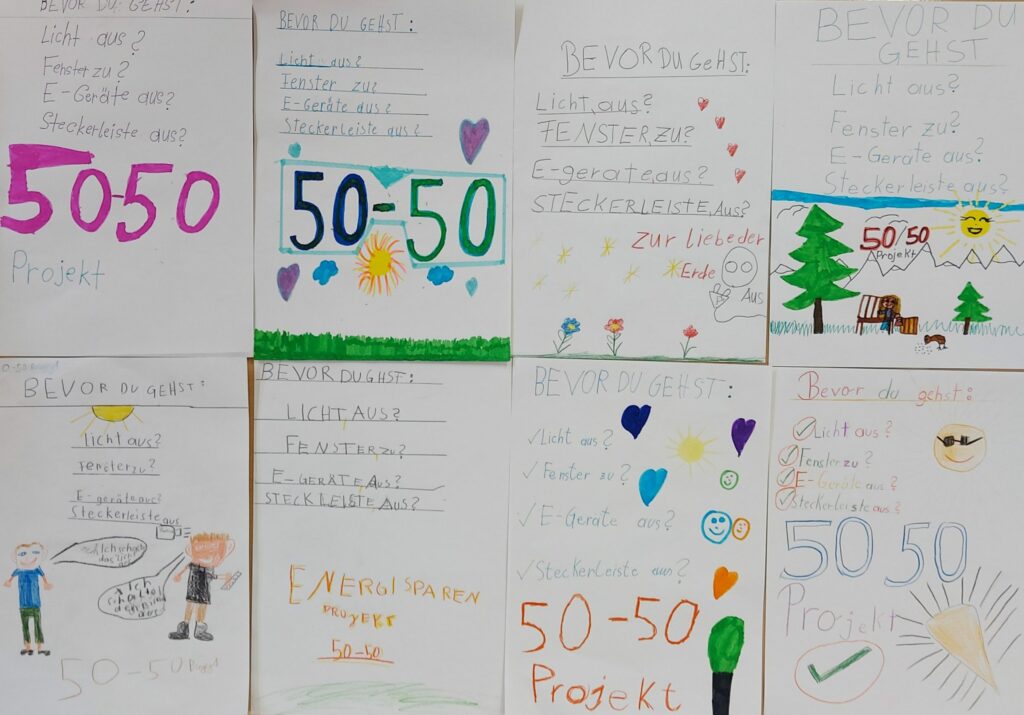 BEVOR DU GEHST:
Licht aus?
Fenster zu?
E-Geräte aus?
Steckerleiste aus?
50-50
Projekt
BEVOR DU GEHST:
Licht aus?
Fenster zu?
E-Geräte aus?
Steckerleiste aus?
50-50
BEVOR DU GeHST:
Licht, aus?
FENSTER, ZU?
E-gerate, aus?
STECKERLEISTE, Aus?
zur liebe der
Erde
Aus
BEVOR DU
GEHST
Licht aus?
Fenster zu?
E-Geräte aus?
Steckerleiste aus?
50/50
Projekt
BEVOR DU GEHST:
licht aus?
Fenster zu?
E-geräte aus?
Steckerleiste aus
Ich
das licht
aus
Ich
den
aus
50-50
BEVOR DU GHST:
LICHT, AUS?
FENSTER zu?
E-GERÄTE, Aus?
STECKLEISTE, Aus?
ENERGISPAREN
PROJEKT
50-50
BEVOR DU GEHST:
✓Licht aus?
✓Fenster zu?
✓E-Geräte aus?
✓Steckerleiste aus?
50-50
Projekt
Bevor du gehst:
✓Licht aus?
✓Fenster zu?
✓E-Geräte aus?
✓Steckerleiste aus?
50 50
Projekt